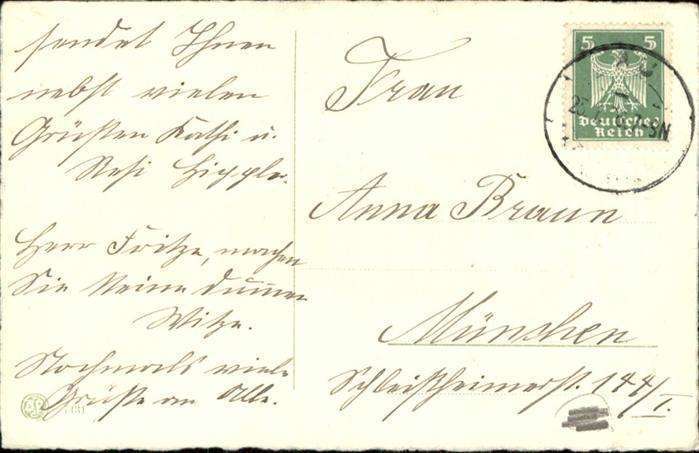 sendet Ihnen
nebst vielen
Grüßen Kathi u.
Resi Hippler.
Herr Fritze, machen
Sie keine dummen
Witze.
Nochmals viele
Grüße an Alle.
Frau
Anna Braun
München
Schleißheimerst. 144/I.
5 5
Deutsches
Reich